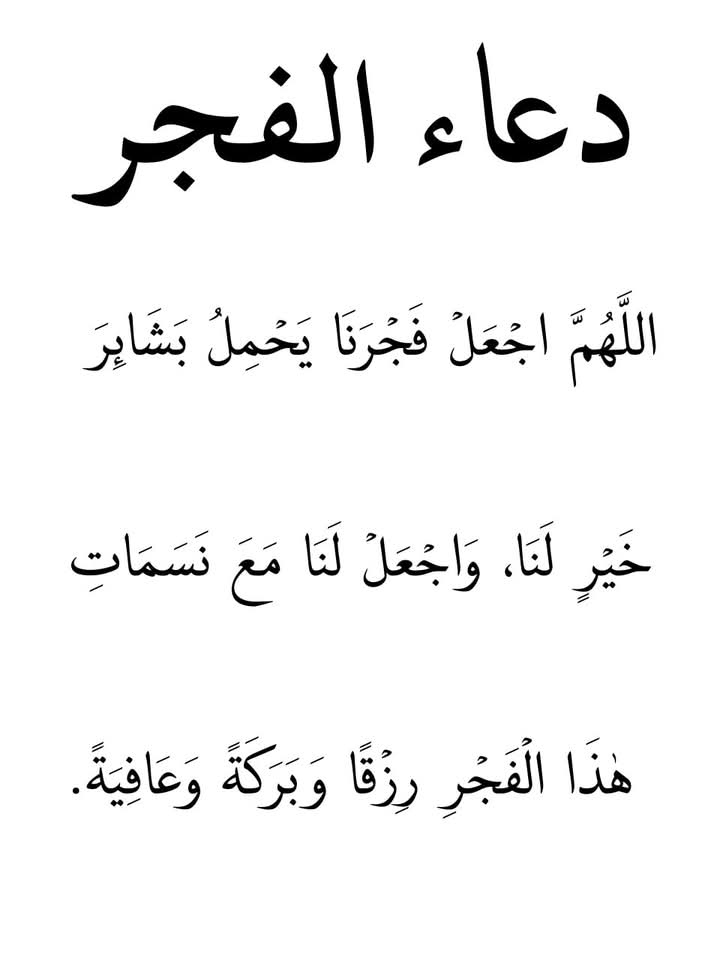 دعاء الفجر
اللَّهُمَّ اجْعَلْ فَجْرَنَا يَحْمِلُ بَشَائِرَ
خَيْرٍ لَنَا، وَاجْعَلْ لَنَا مَعَ نَسَمَاتِ
هٰذَا الْفَجْرِ رِزْقًا وَبَرَكَةً وَعَافِيَةً.